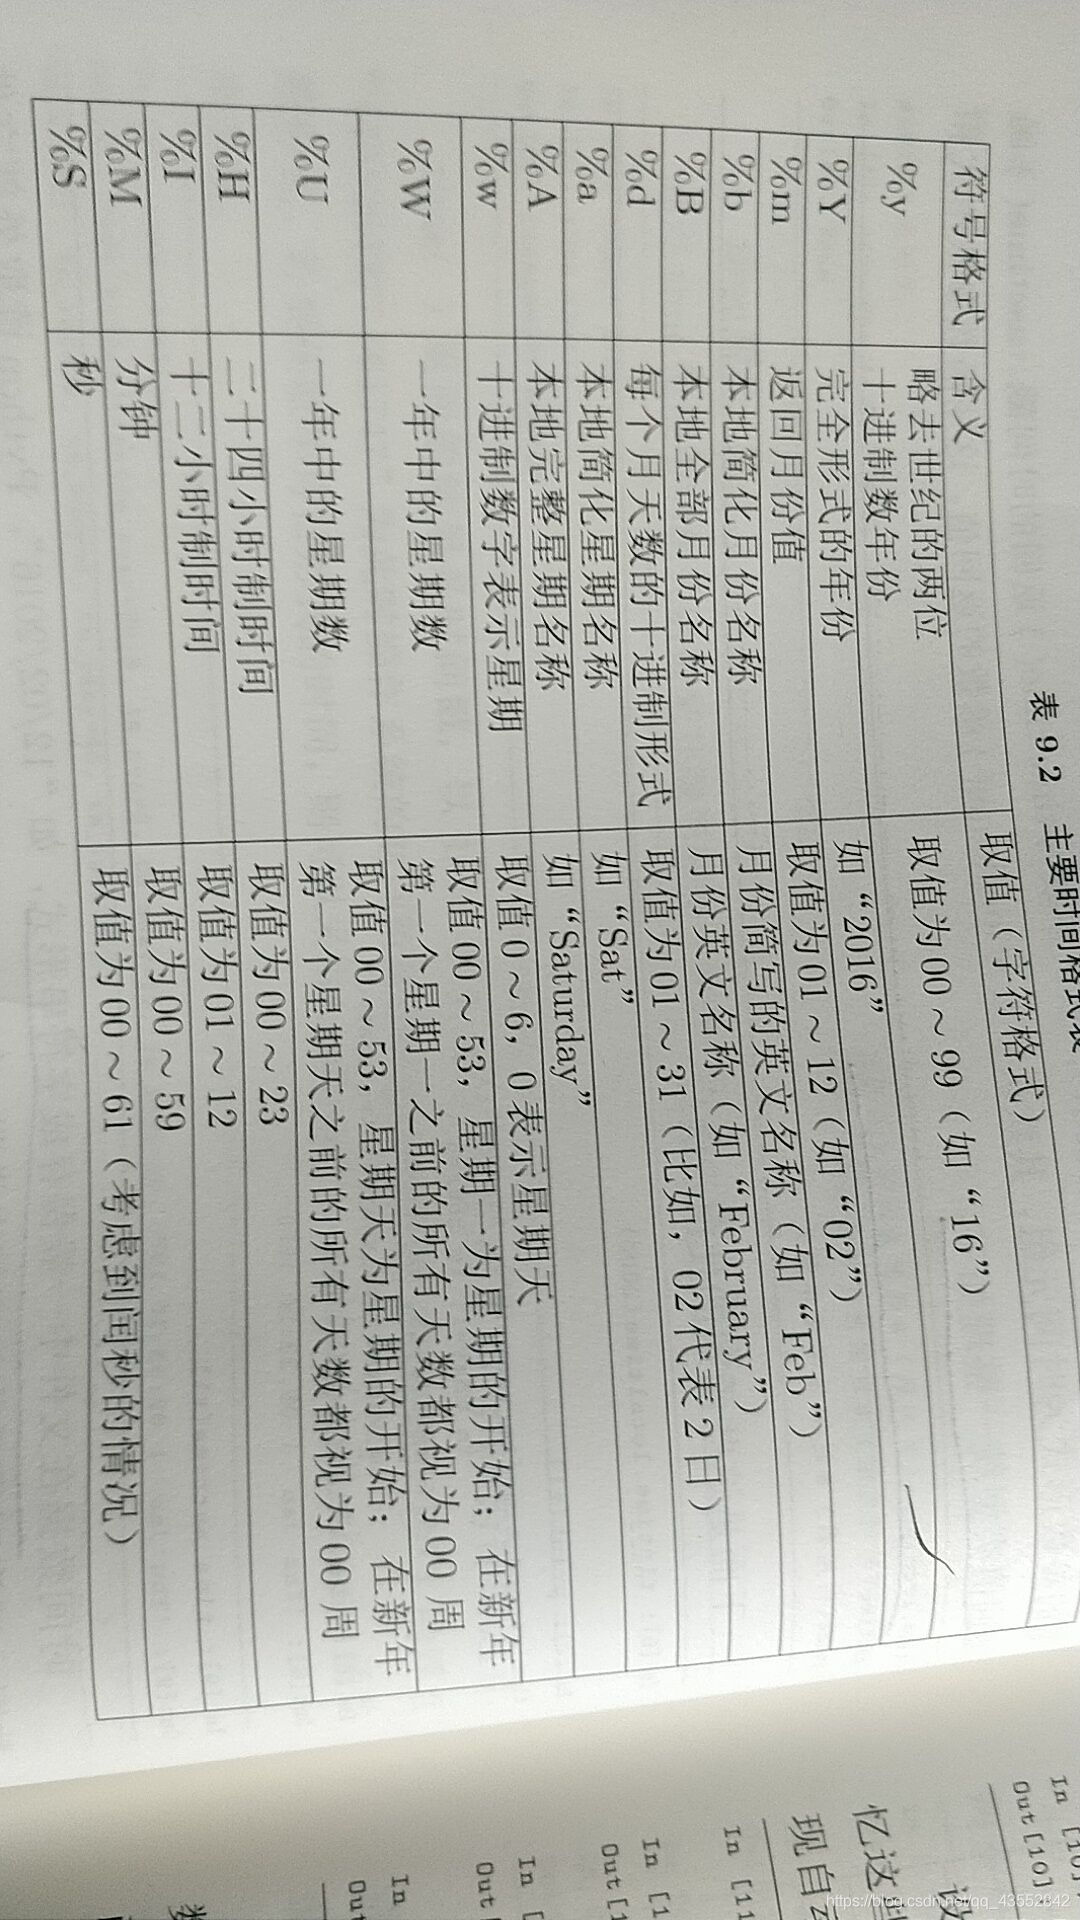 表 9.2 主要时间格式表
符号格式 含义 取值（字符格式）
%y 略去世纪的两位 取值为 00 ~ 99（如 “16”）
十进制数年份
%Y 完全形式的年份 如 “2016”
%m 返回月份值 取值为 01 ~ 12（如 “02”）
%b 本地简化月份名称 月份简写的英文名称（如 “Feb”）
%B 本地全部月份名称 月份英文名称（如 “February”）
%d 每个月天数的十进制形式 取值为 01 ~ 31（比如，02 代表 2 日）
%a 本地简化星期名称 如 “Sat”
%A 本地完整星期名称 如 “Saturday”
%w 十进制数字表示星期 取值 0 ~ 6，0 表示星期天
%W 一年中的星期数 取值 00 ~ 53，星期一为星期的开始；在新年
第一个星期一之前的所有天数都视为 00 周
%U 一年中的星期数 取值 00 ~ 53，星期天为星期的开始；在新年
第一个星期天之前的所有天数都视为 00 周
%H 二十四小时制时间 取值为 00 ~ 23
%I 十二小时制时间 取值为 01 ~ 12
%M 分钟 取值为 00 ~ 59
%S 秒 取值为 00 ~ 61（考虑到闰秒的情况）
In [10]
Out[10]
设
忆这
现自
In [11
In [1
Out[1
In [
Out
In
Out
数
https://blog.csdn.net/qq_43552842